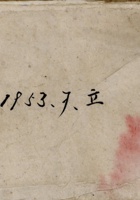 1953.7.立